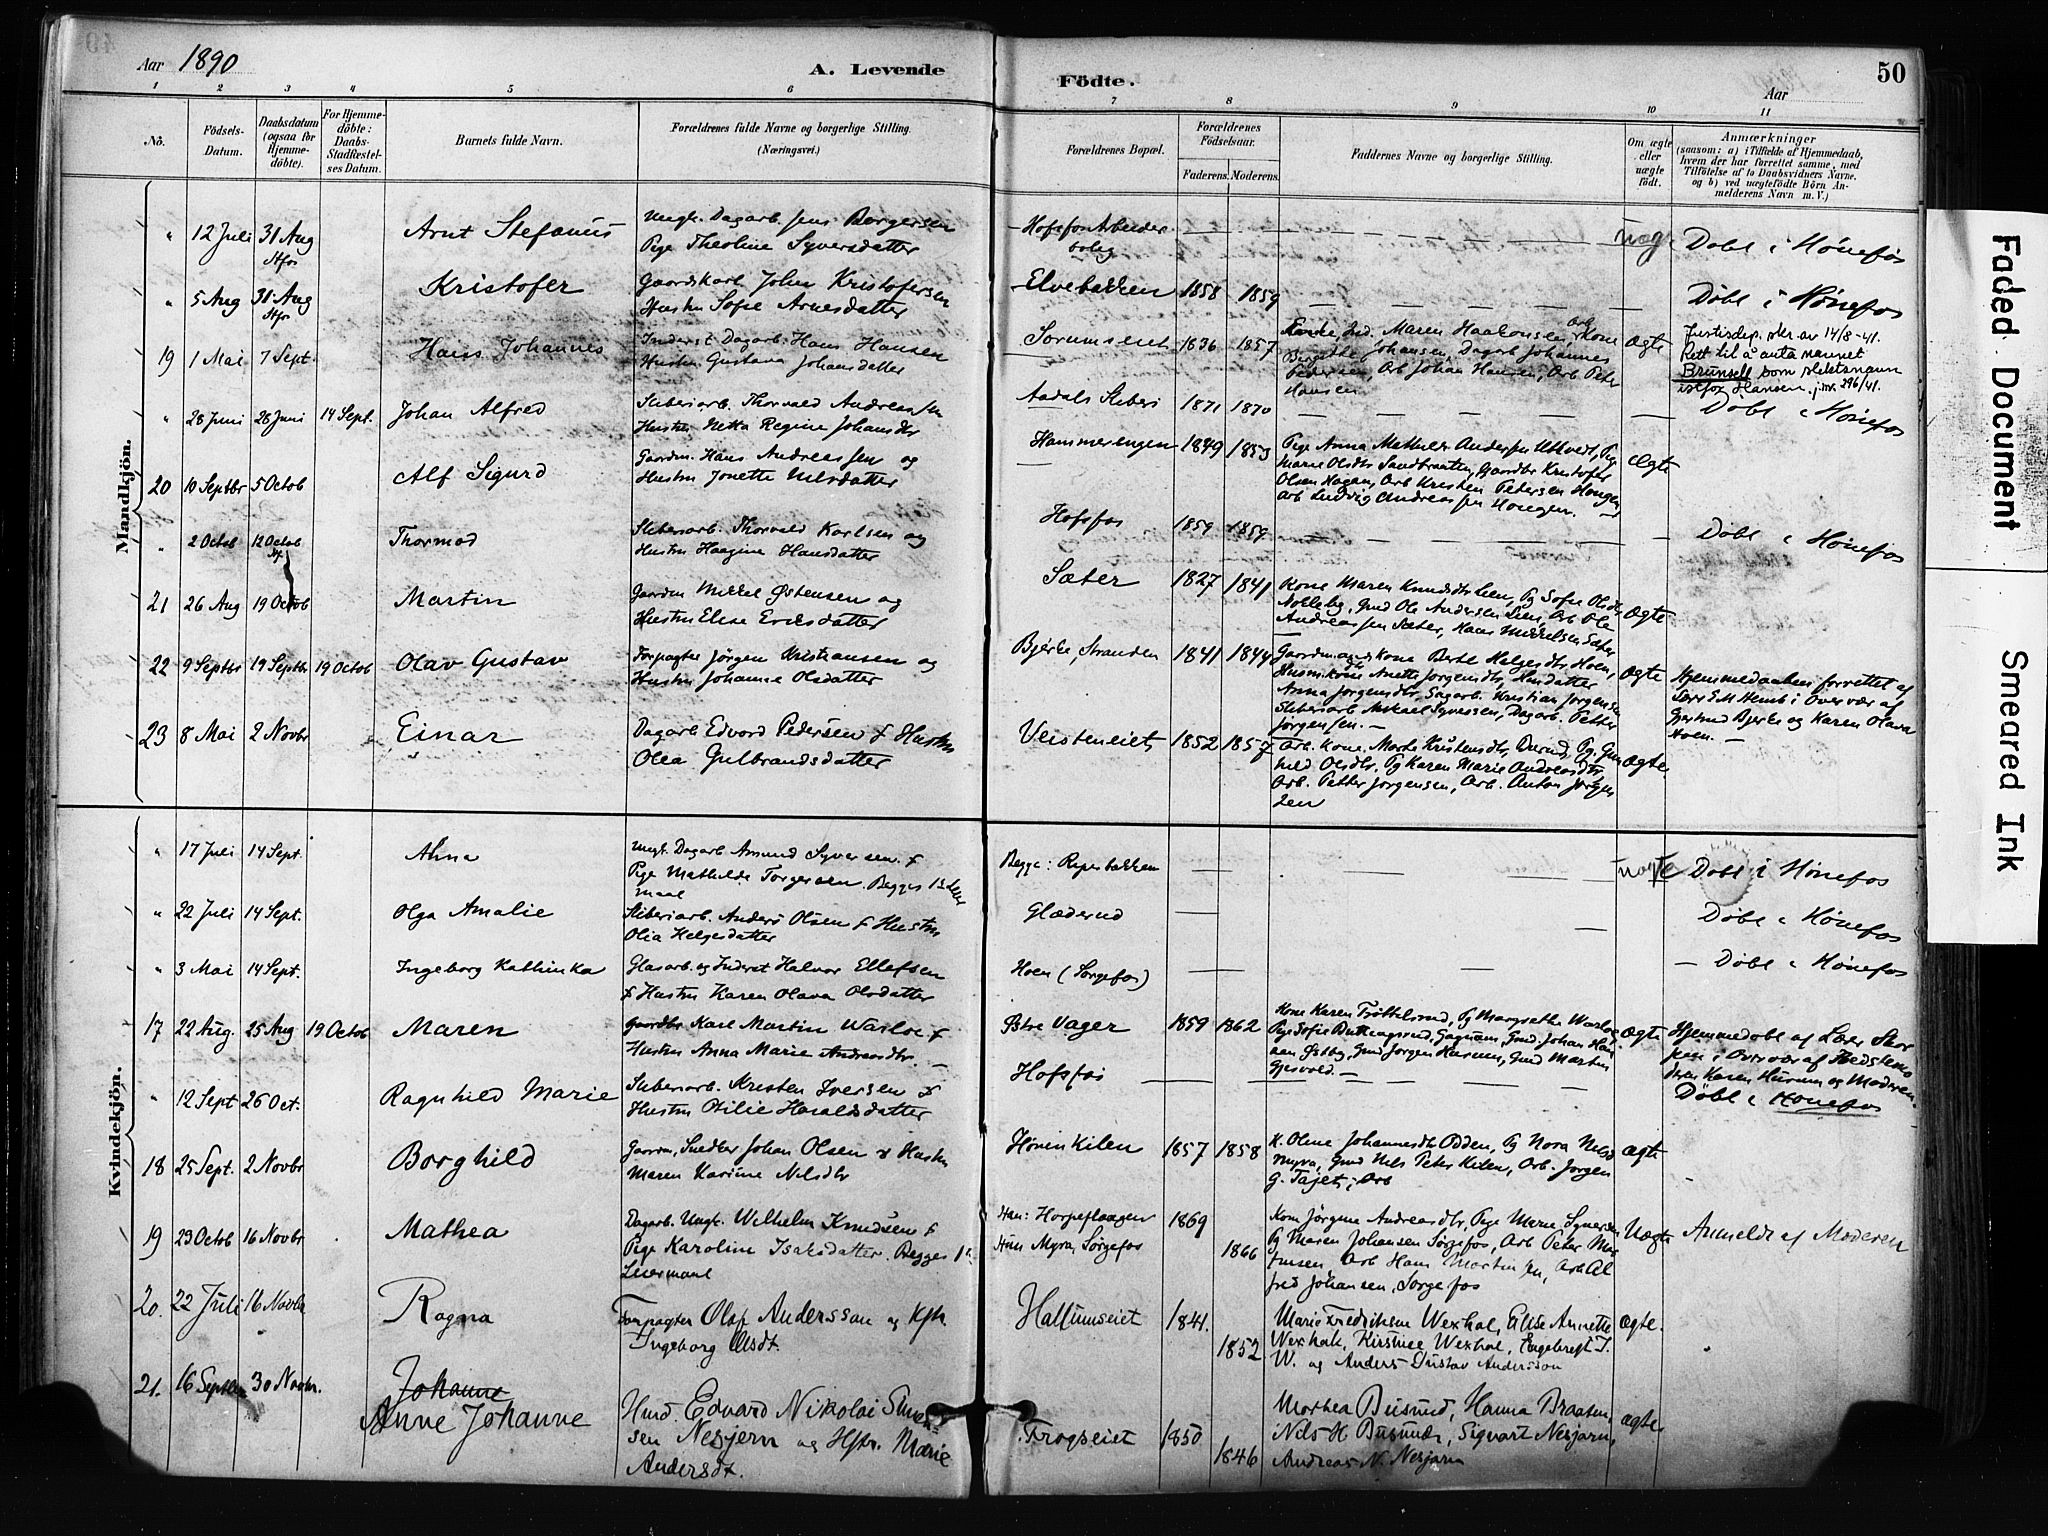 Aar 1890
A. Levende
Födte.
50
Aar
1 2 3 4 5 6 7 8 9 10 11
No.
Födsels-
Datum.
Daabsdatum
(ogsaa for
Hjemme-
döbte).
For Hjemme-
döbte:
Daabs-
Stadfæstel-
ses Datum.
Barnets fulde Navn.
Forældrenes fulde Navne og borgerlige Stilling.
(Næringsvei.)
Forældrenes Bopæl.
Forældrenes
Födselsaar.
Faderens. Moderens.
Faddernes Navne og borgerlige Stilling.
Om ægte
eller
uægte
födt.
Anmærkninger
(saasom: a) i Tilfælde af Hjemmedaab,
hvem der har forrettet samme, med
Tilföielse af to Daabsvidners Navne,
og b) ved uægtefödte Börn An-
melderens Navn m. V.)
Mandkjön.
" 12 Juli 31 Aug Arnt Stefanus Ungk. Dagarb. Jens Borgersen
Pige Theoline Syversdatter
Hofsfos Arbeider
bolig
uæg Døbt i Hønefos
" 5 Aug 31 Aug Kristofer Gaardskarl John Kristofersen
Hustru Sofie Arnesdatter
Elvebakken 1858 1859 Døbt i Hønefos
19 1 Mai 7 Sept. Hans Johannes Inderst Dagarb. Hans Hansen
Hustru Gustava Johansdatter
Sørumseiet 1836 1857 Maren Haakonsen Kone
Johansen, Dagarb Johannes
Pedersen, Arb Johan Hansen, Arb Peter
Hansen
ægte
Justisdep. skr. av 14/8-41.
Rett til å anta navnet
Brunsell som slektsnavn
istfor Hansen, j.nr. 296/41.
" 28 Juni 28 Juni 14 Sept. Johan Alfred Sliberiarb. Thorvald Andreassen
Hustru Netta Regine Johansdtr
Aadals Sliberi 1871 1870 Døbt i Hønefos
20 10 Septbr 5 Octob Alf Sigurd Gaardm. Hans Andreassen og
Hustru Jonette Nilsdatter
Hammerengen 1849 1853 Pige Anna Mathilde Andersen
Marie Olsdtr Sandbraaten, Gaardbr Kristofer
Olsen Hagan, Arb Kristen Petersen Hongen
Arb Ludvig Andreassen Hongen.
Ægte
" 2 Octob 12 Octob Thormod Sliberiarb. Thorvald Karlsen og
Hustru Haagine Hansdatter
Hofsfos 1859 1859 Døbt i Hønefos
21 26 Aug 19 Octob Martin Gaardm Mikkel Østensen og
Hustru Elise Eriksdatter
Sæter 1827 1841 Kone Maren Knudsdtr Lien, Pg Sofie Olsdtr
Nolleby, Gmd Ole Andersen Lien, Arb Ole
Andreassen Sæter, Hans Mikkelsen Sæter
Ægte
22 9 Septbr 19 Septbr 19 Octob Olav Gustav Forpagter Jörgen Kristiansen og
Hustru Johanne Olsdatter
Bjerke, Stranden 1841 1844 Gaardmandskone Berte Helgesdtr Hoen,
Husmkone Anette Jørgensdtr, Husdatter
Anna Jørgensdtr, Dagarb. Kristian Jørgensen
Sliberiarb Mikael Syversen, Dagarb. Petter
Jørgensen.
Ægte
Hjemmedaaben forrettet af
Lærer E M Hemb i Overvær af
Gjertrud Bjerke og Karen Olava
Hoen.
23 8 Mai 2 Novbr Einar Dagarb Edvard Pedersen & Hustru
Olea Gulbrandsdatter
Veisteneiet 1852 1857 Arb. Kone Marte Kristensdtr, Pg. Gun
hild Olsdtr. Pg Karen Marie Andreasdtr
Arb. Petter Jørgensen, Arb. Anton Jørgen
sen
Ægte
Kvindekjön.
" 17 Juli 14 Sept. Anna Ungk Dagarb Amund Syversen &
Pige Mathilde Torgersen. Begges 1ste Leier
maal
Begge: Riperbakken
uægte Døbt i Hønefos
" 22 Juli 14 Sept. Olga Amalie Sliberiarb. Anders Olsen & Hustru
Olia Helgesdatter
Glæderud Døbt i Hønefos
" 3 Mai 14 Sept. Ingeborg Kathinka Glasarb. og Inderst Halvor Ellefsen
& Hustru Karen Olava Olsdatter
Hoen (Sørgefos) Døbt i Hønefos
17 22 Aug. 25 Aug 19 Octob Maren Gaardbr Karl Martin Warloe &
Hustru Anna Marie Andreasdtr.
Østre Vager 1859 1862 Kone Karen Trøttelsrud, Pg Margrethe Warloe
Pige Sofie Gagnum, Gmd. Johan Han
sen Østby, Gmd Jørgen Hurum, Gmd Martin
Gjesvold.
Ægte
Hjemmedøbt af Lærer Skor
pen i Overvær af Bedstemo
deren Karen Hurum og Moderen.
" 12 Sept 26 Oct. Ragnhild Marie Sliberiarb. Kristen Iversen &
Hustru Otilie Haraldsdatter
Hofsfos Døbt i Hønefos
18 25 Sept. 2 Novbr Borghild Gaardm, Snedker Johan Olsen & Hustru
Maren Karine Nilsdtr
Hønen Kilen 1857 1858 K. Oline Johannesdtr Odden, Pg Nora Nilsd
myra, Gmd Nils Peter Kilen, Arb. Jørgen
G. Tajet, Arb
ægte
19 23 Octob 16 Novbr Mathea Dagarb. Ungk. Wilhelm Knudsen &
Pige Karoline Isaksdatter. Begges 1ste
Leiermaal
Han: Horpeflaagen
Hun Myra, Sørgefos
1869 1866
Kone Jørgine Andreasdtr, Pige Marie Syversen
Pg Maren Johansen Sørgefos, Arb Peter Mar
tinsen Arb Hans Martinsen, Arb Al
fred Johansen, Sørgefos
Uægte Anmeldt af Moderen
20. 22 Juli 16 Novbr Ragna Forpagter Olaf Andersson og Hstr.
Ingeborg Olsdt.
Hallumseiet 1841. 1852 Marie Fredriksen Wexhal, Elise Annette
Wexhal, Kristine Wexhal, Engebregt J.
W. og Anders Gustav Andersson
Ægte.
21. 16 Septbr 30 Novbr. Johanne
Anne Johanne Hmd. Edvard Nikolai Simen
sen Nesjern og Hstr. Marie
Andersdt.
Frogseiet 1850 1846 Marthea Busund, Hanna Braaten,
Nils H Busund, Sigvart Nesjern,
Andreas N. Nesjern
Ægte.
Faded Document
Smeared Ink